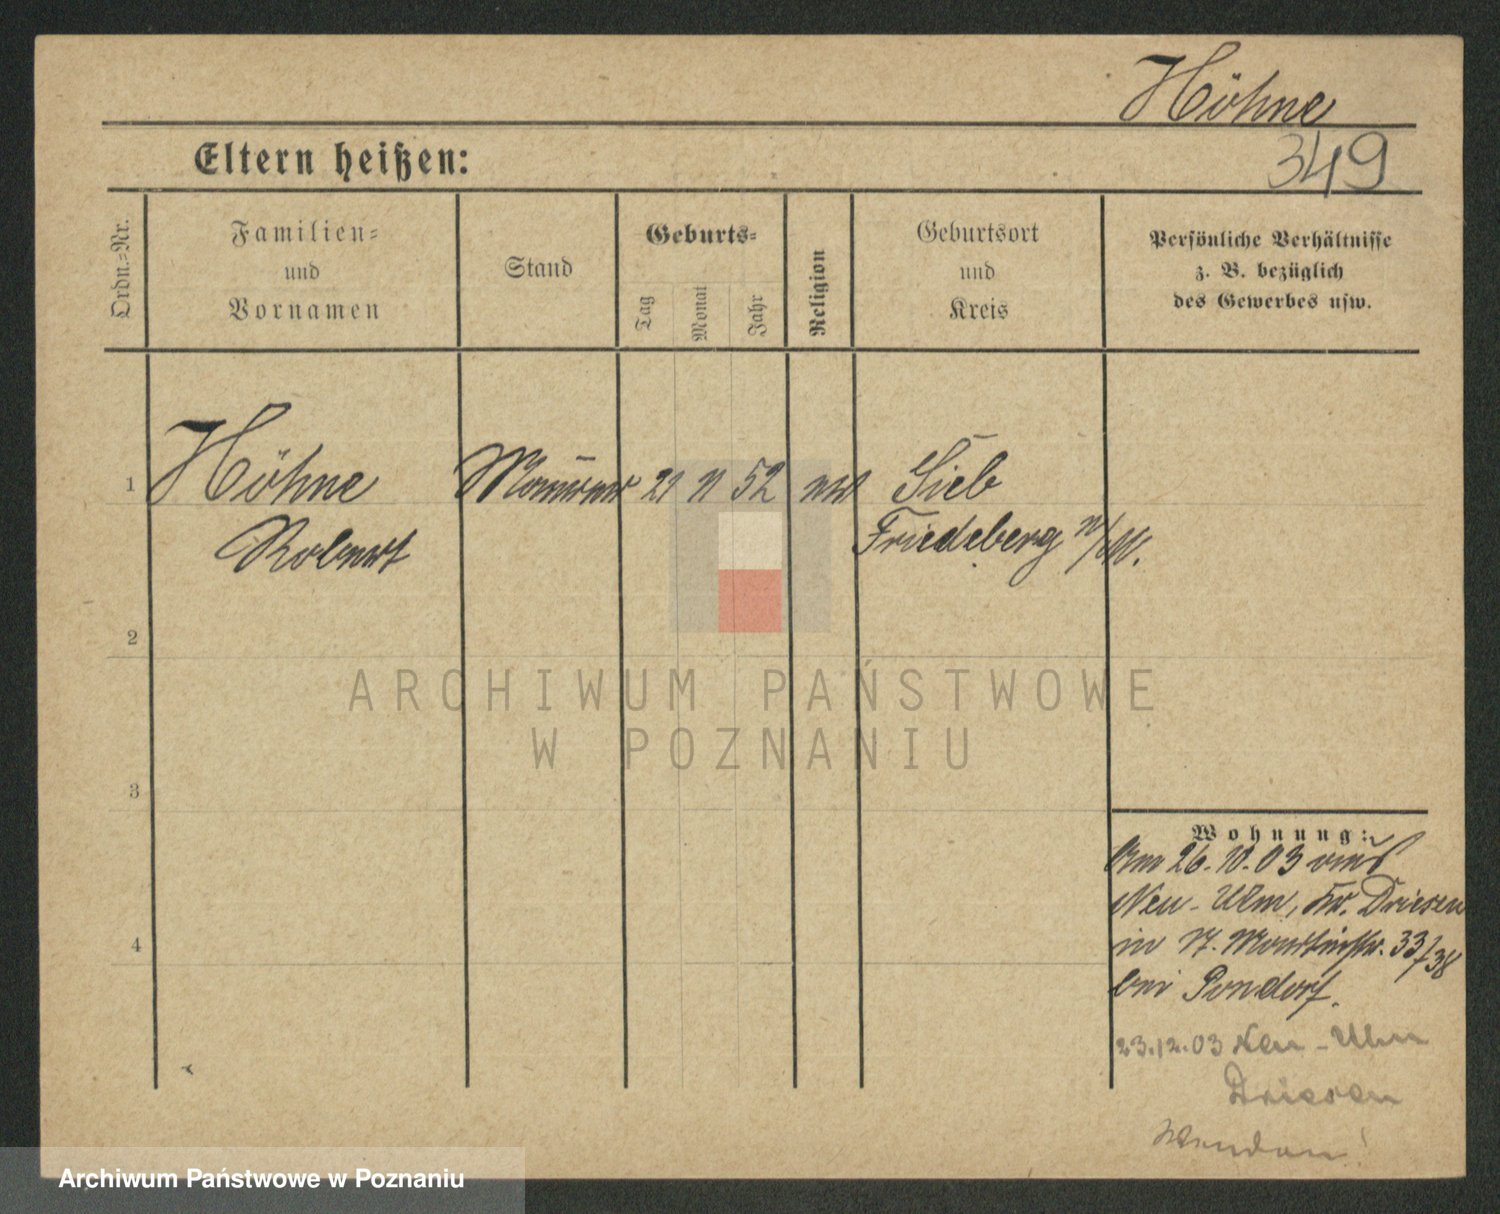 Höhne
349
Eltern heißen:
Ordn.-Nr.
Familien-
und
Vornamen
Stand
Geburts-
Tag
Monat
Jahr
Religion
Geburtsort
und
Kreis
Persönliche Verhältnisse
z. B. bezüglich
des Gewerbes usw.
1 Höhne Maurer 21 11 52 ev Lieb
Robert Friedeberg N/M.
2
3
4
Wohnung:
Am 26.10.03 aus
Neu-Ulm, Kr. Driesen
in N. Martinstr. 33/38
bei Pondorf.
23.12.03 Neu-Ulm
Driesen
Wenden!
ARCHIWUM PAŃSTWOWE
W POZNANIU
Archiwum Państwowe w Poznaniu